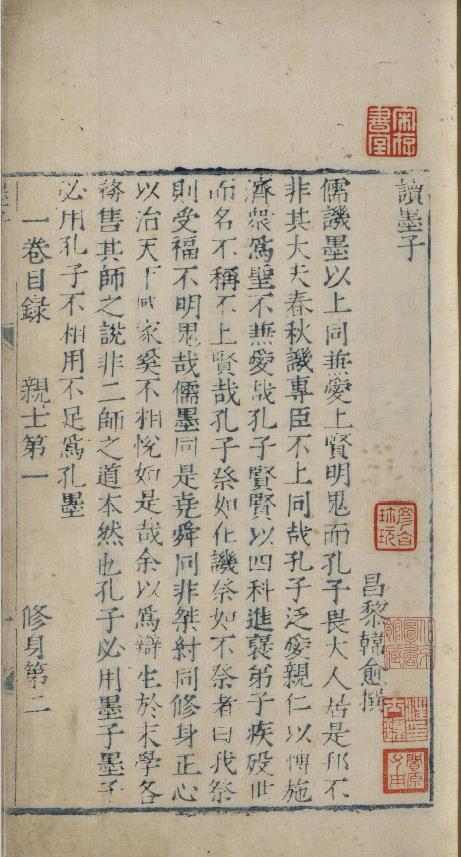 讀墨子
昌黎韓愈撰
儒譏墨以上同兼愛上賢明鬼而孔子畏大人居是邦不
非其大夫春秋譏專臣不上同哉孔子泛愛親仁以博施
濟衆爲聖不兼愛哉孔子賢賢以四科進襃弟子疾歿世
而名不稱不上賢哉孔子祭如在譏祭如不祭者曰我祭
則受福不明鬼哉儒墨同是堯舜同非桀紂同修身正心
以治天下國家奚不相悅如是哉余以爲辯生於末學各
務售其師之說非二師之道本然也孔子必用墨子墨子
必用孔子不相用不足爲孔墨
一卷目錄 親士第一 修身第二
宋存書室
彥合珍玩